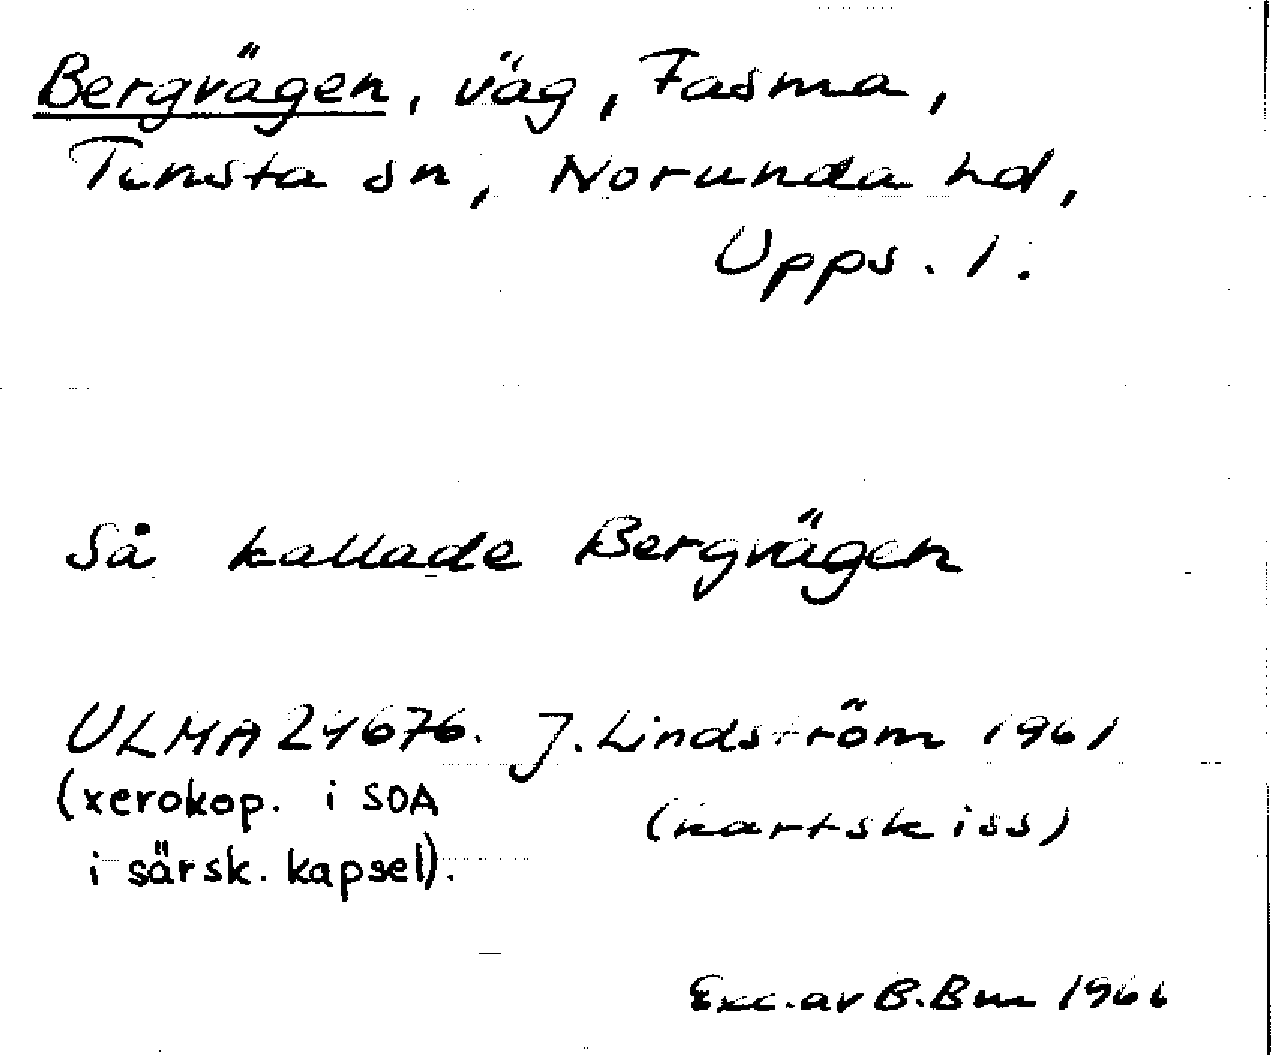 Bergvägen, väg, Fasma,
Tensta sn, Norunda hd,
Upps. l.
Så kallade Bergvägen
ULMA 24676. J. Lindström 1961
(xerokop. i SOA
(kartskiss)
i särsk. kapsel).
Exc. av B. Bm 1966